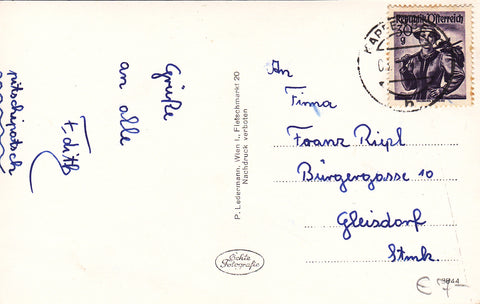 Grüße
an alle
Edith
pitschipatsch
P. Ledermann, Wien I., Fleischmarkt 20
Nachdruck verboten
Echte
Fotografie
Republik Österreich
30 g
An
Firma
Franz Riepl
Bürgergasse 10
Gleisdorf
Stmk.
€ 7-